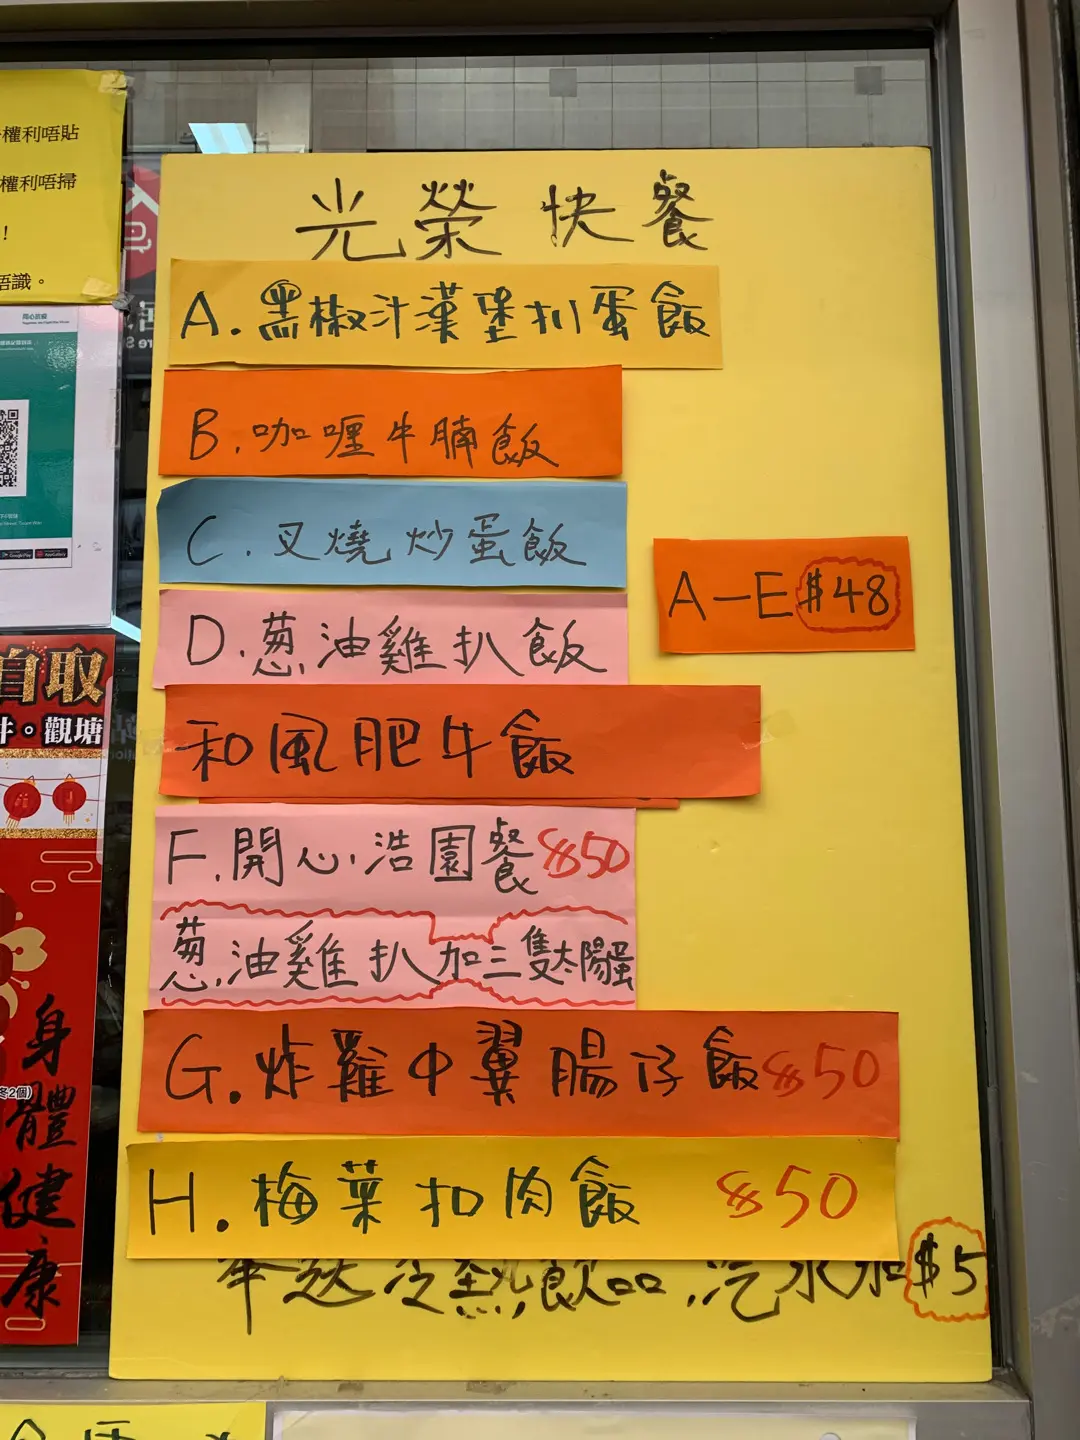 權利唔貼
權利唔掃
!
唔識。
光榮 快餐
A.黑椒汁漢堡扒蛋飯
B.咖喱牛腩飯
C.叉燒炒蛋飯
A—E $48
D.葱油雞扒飯
和風肥牛飯
F.開心浩園餐 $50
葱油雞扒加三隻太陽蛋
G.炸雞中翼腸仔飯 $50
H.梅菜扣肉飯 $50
奉送冷熱飲品,汽水加$5
自取
。觀塘
身
體
健
康